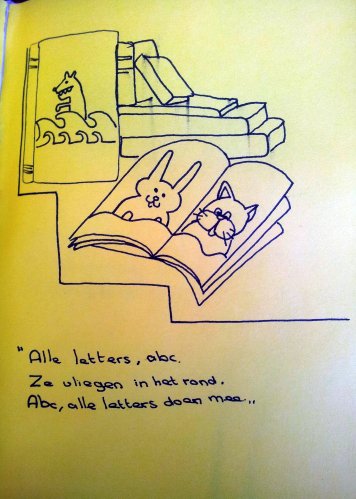 "Alle letters, abc.
Ze vliegen in het rond.
Abc, alle letters doen mee.."